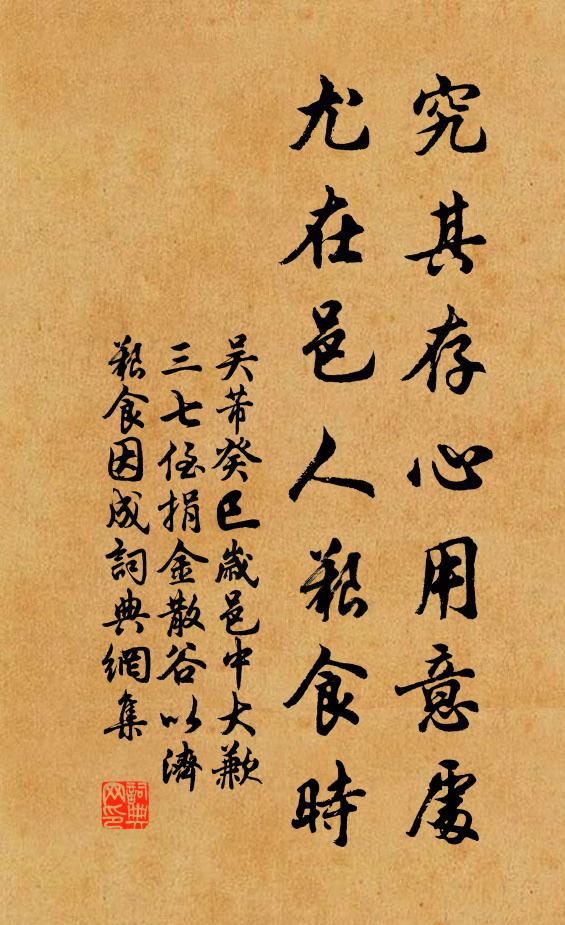 究其存心用意處
尤在邑人艱食時
吴芾癸巳歲邑中大歉
三七侄捐金散谷以濟
艱食因成詞典網集
詞典网印